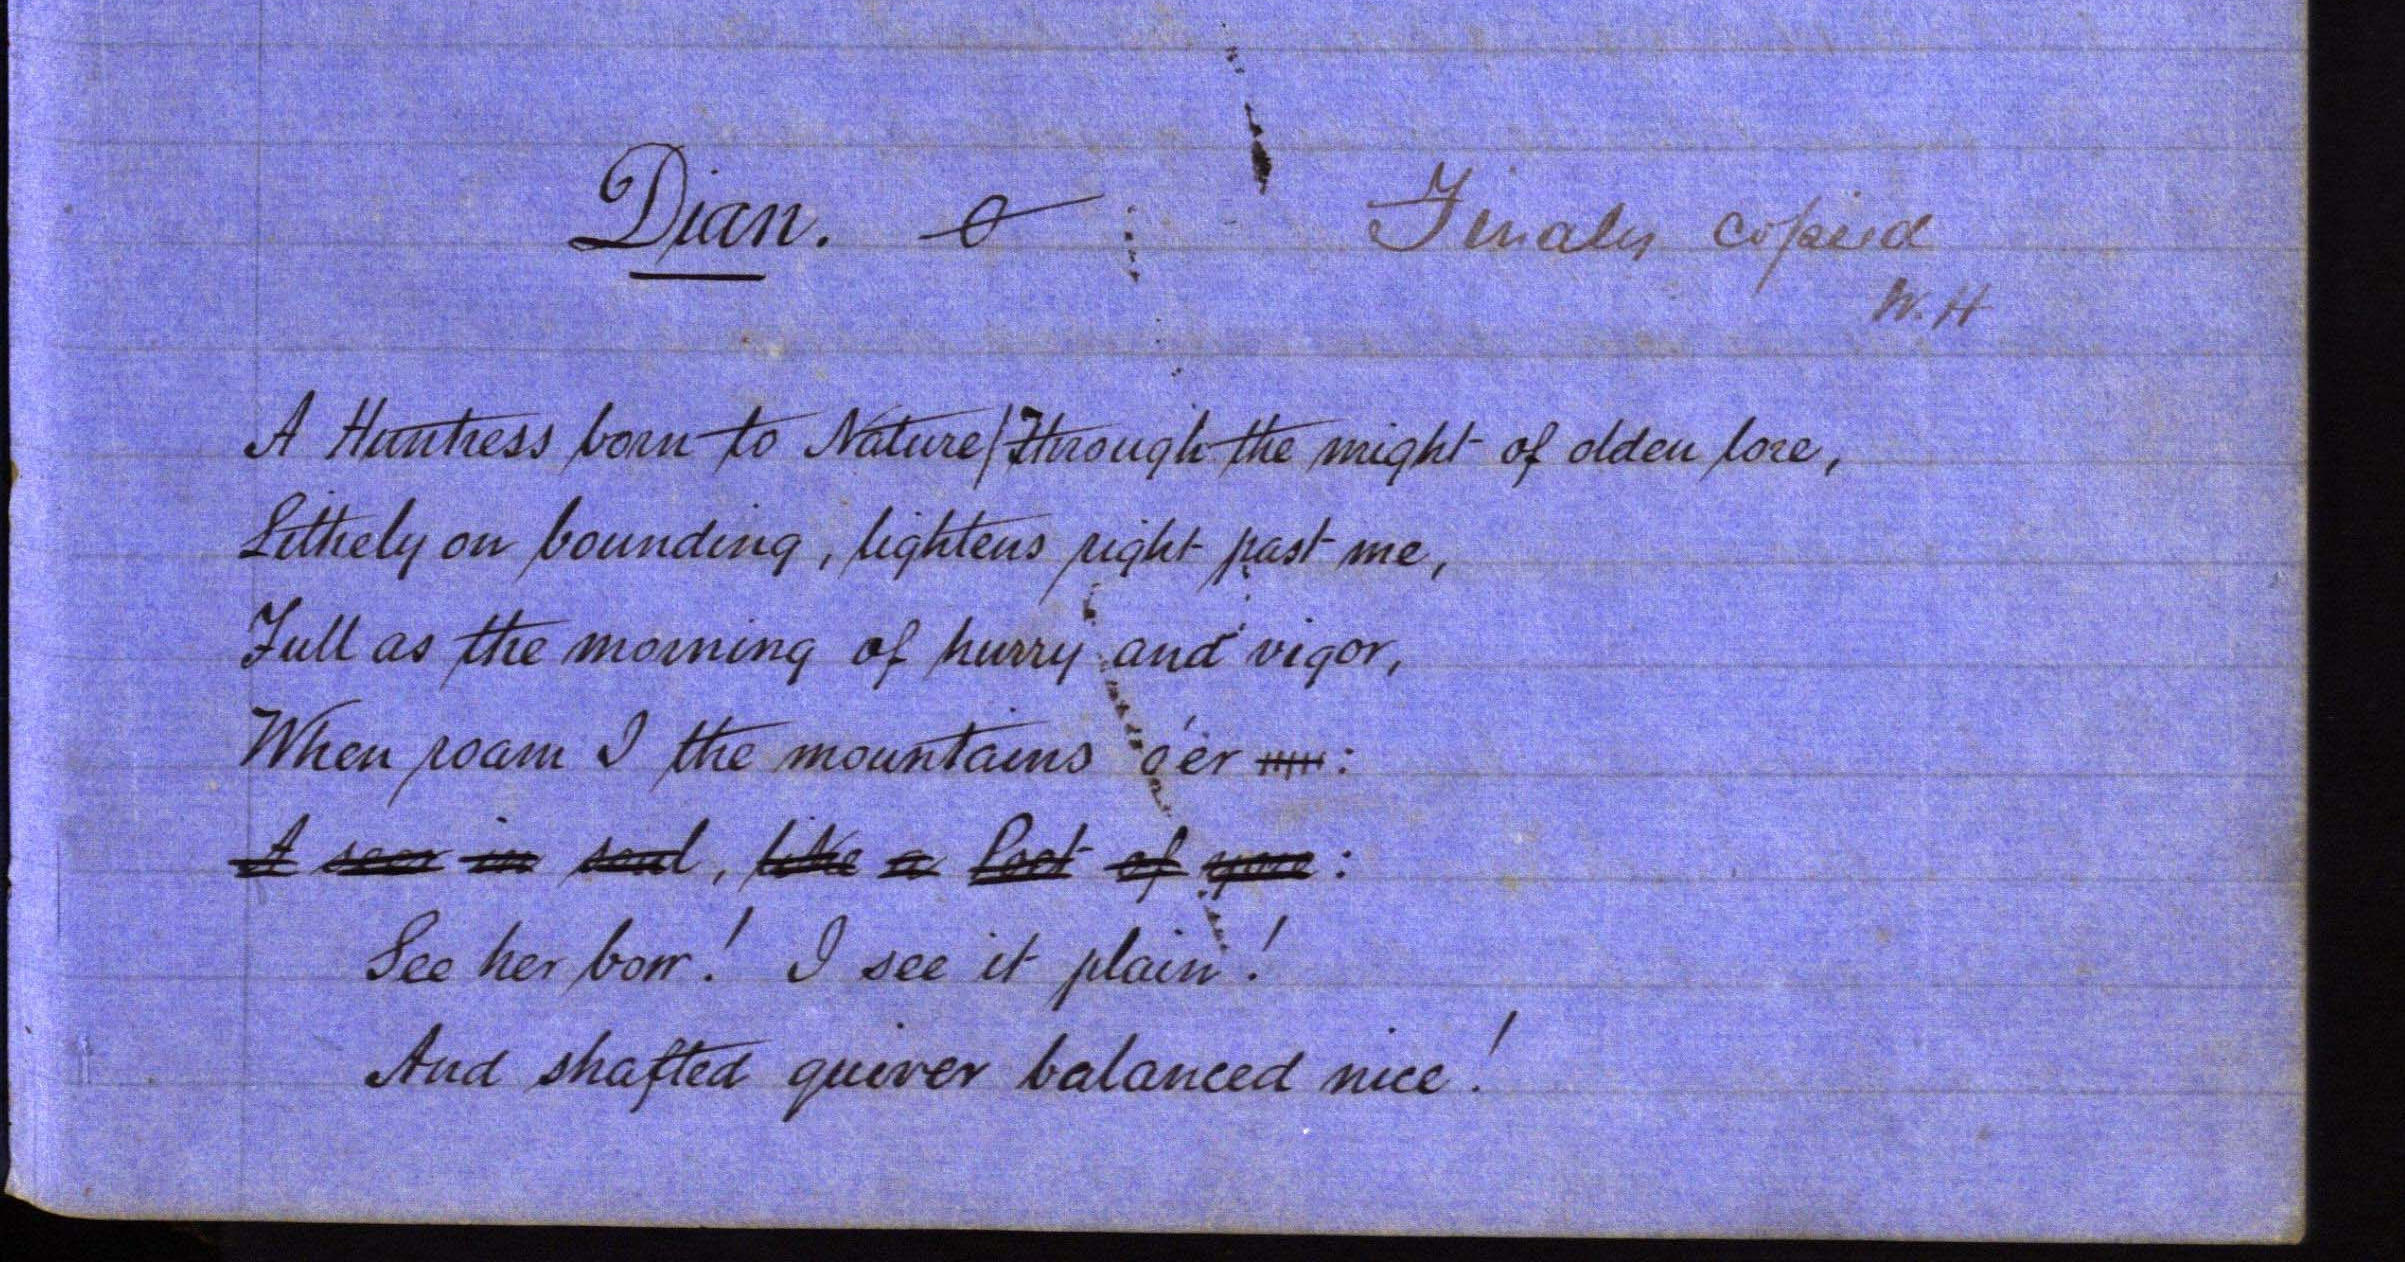 Dian. Finaly copied
W. H
A Huntress born to Nature/Through the might of olden lore,
Lithely on bounding, lightens right past me,
Full as the morning of hurry and vigor,
When roam I the mountains o'er :
A seer in soul, like a Poet of yore :
See her bow! I see it plain!
And shafted quiver balanced nice!